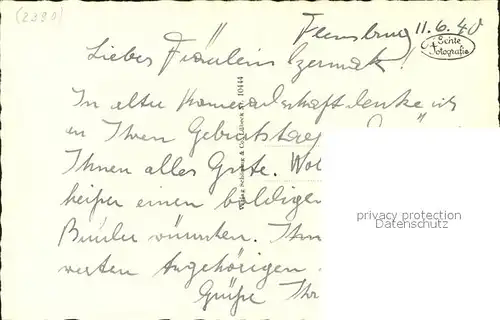 (2990)
Flensburg 11.6.40
Echte Fotografie
Liebes Fräulein Czermak!
In alter Kameradschaft denke ich
an Ihren Geburtstag
Ihnen alles Gute.
einen baldigen
Ihm
werten Angehörigen
Grüße Ihr
Verlag Schöning & Co., Lübeck Nr. 10444
privacy protection
Datenschutz